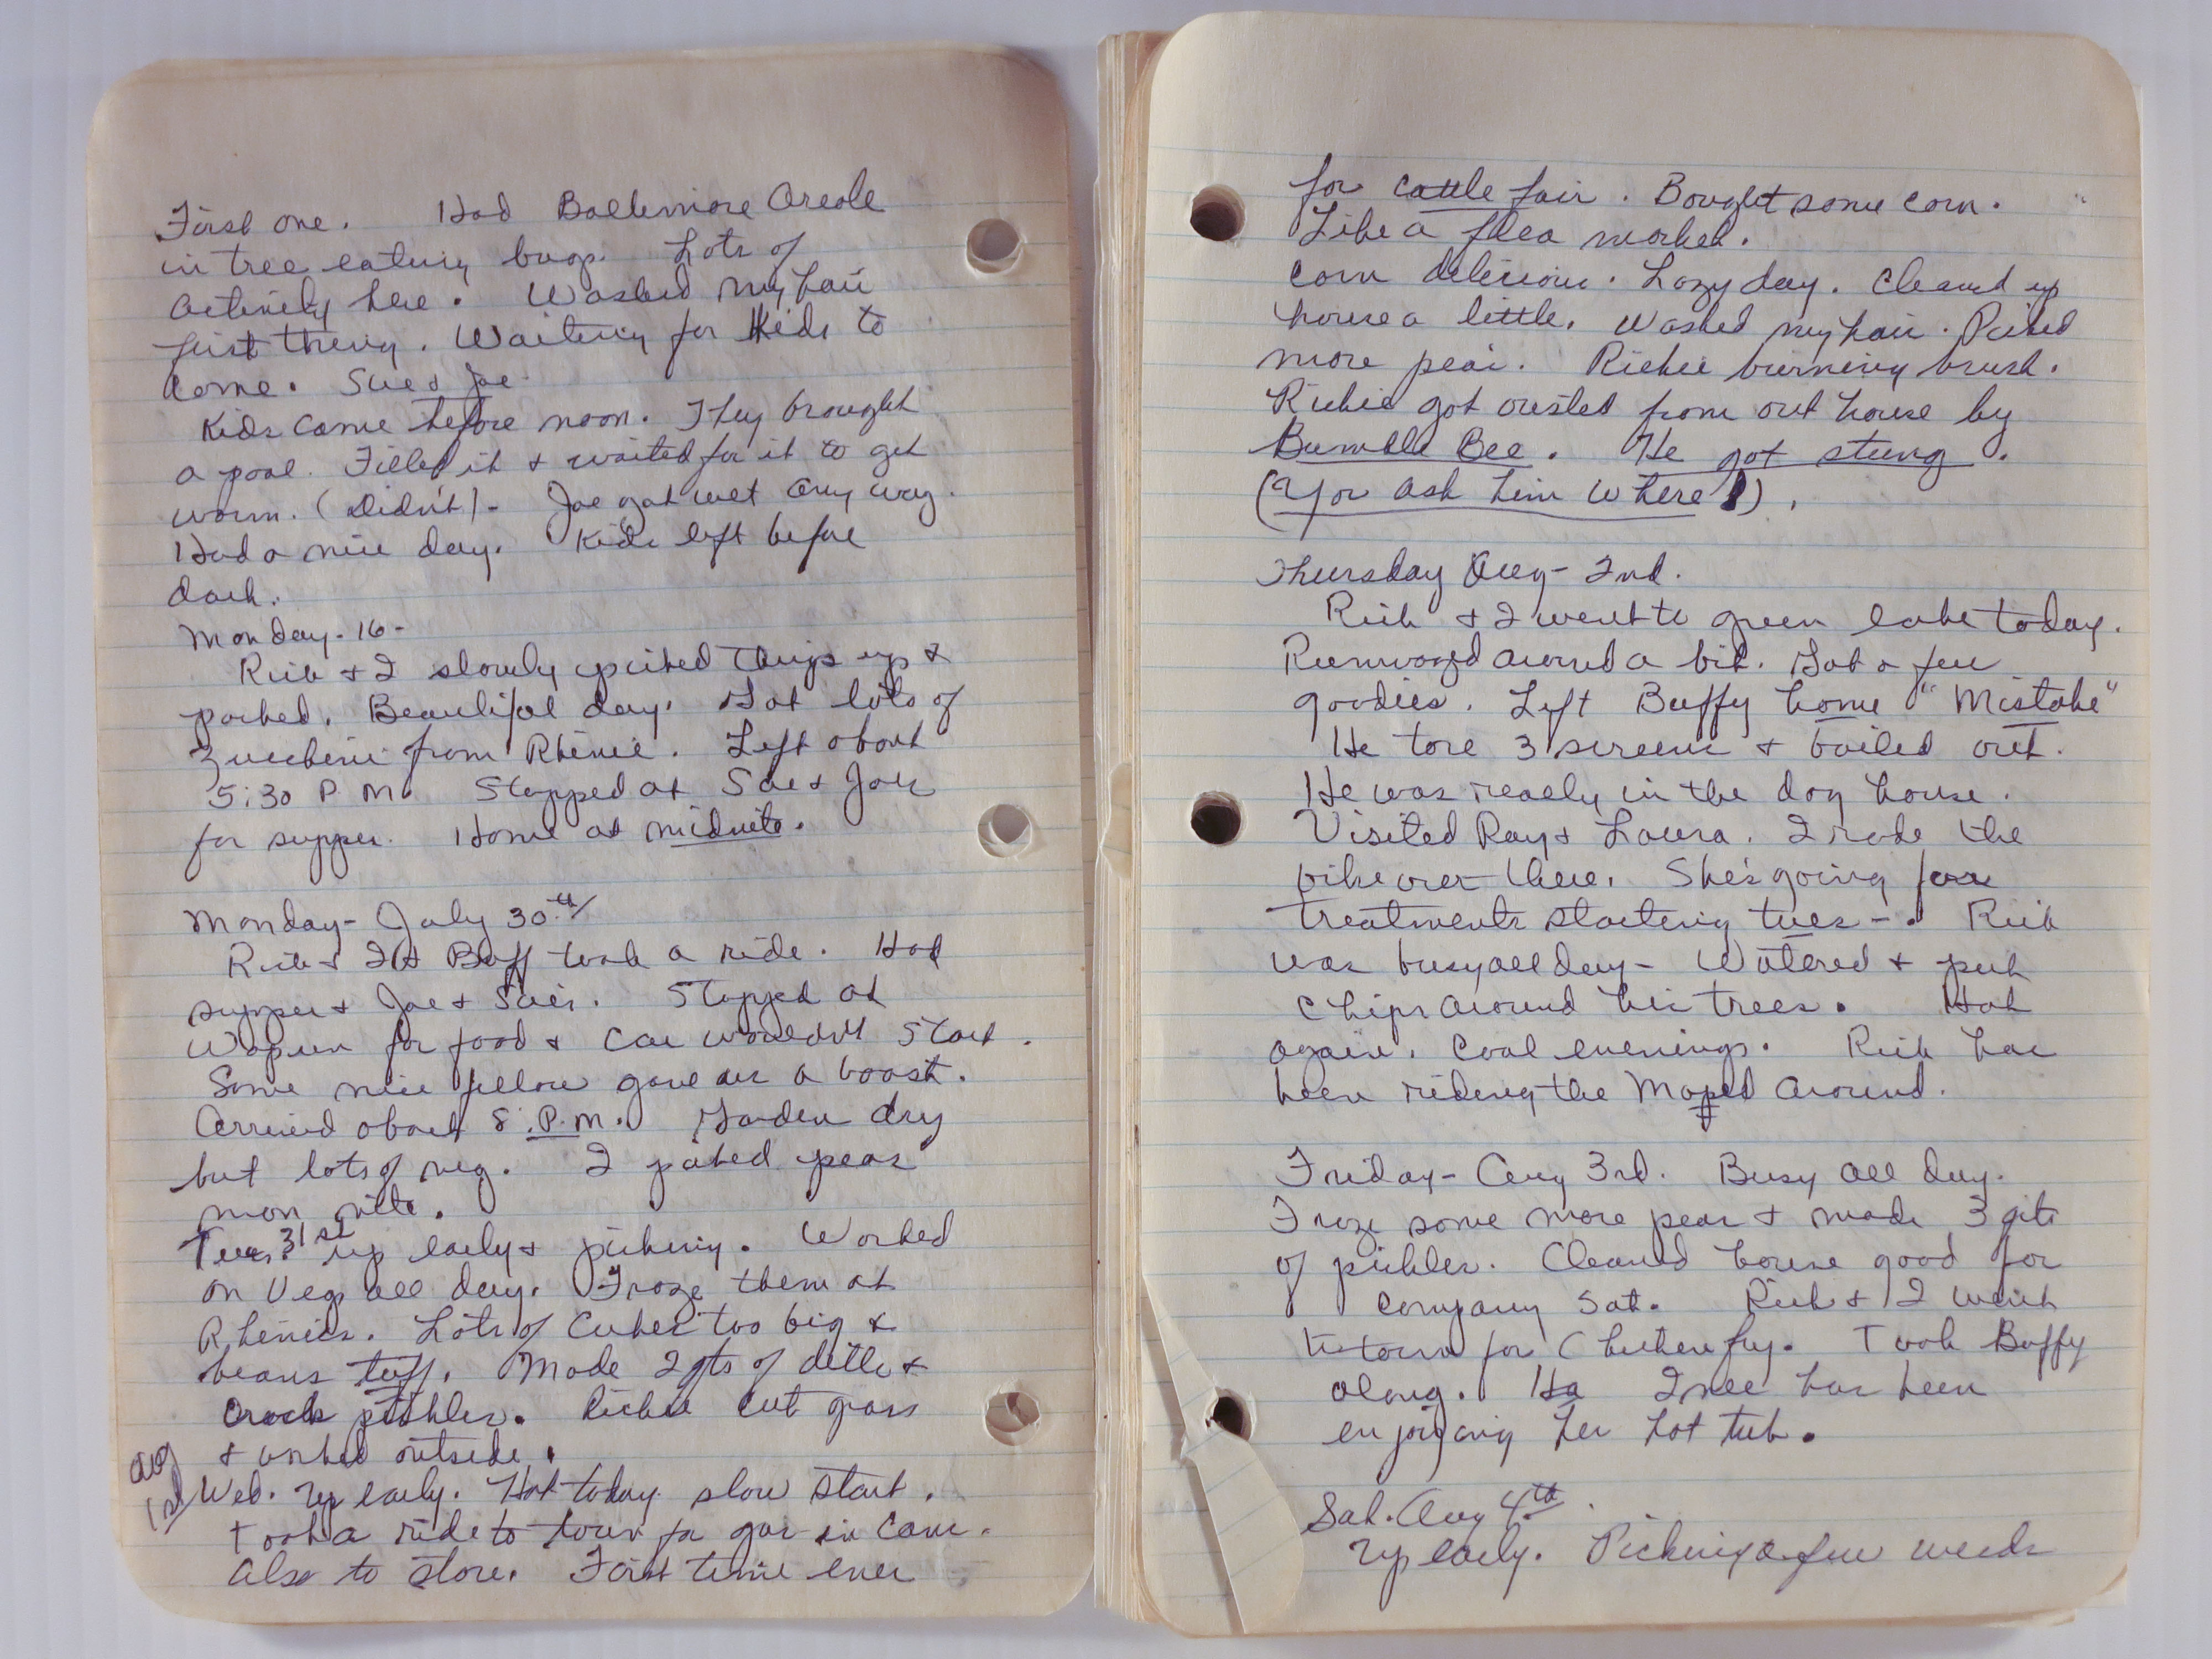 First one. Had Baltemore Oreole
in tree eating bugs. Lots of
activity here. Washed my hair
first thing. Waiting for Kids to
come. Sue & Joe
Kids came before noon. They brought
a pool. Filled it & waited for it to get
warm. (Didn't)- Joe got wet any way.
Had a nice day. Kids left before
dark.
Monday-16-
Rich & I slowly picked things up &
packed. Beautiful day. Got lots of
zuccheni from Rhenie. Left about
5:30 P.M. Stopped at Sue & Joes
for supper. Home at midnite.
Monday- July 30th
Rich & I & Buff took a ride. Had
supper & Joe & Sue's. Stopped at
for food & Car wouldn't start.
Some nice fellow gave us a boost.
Arrived about 8:P.M. Garden dry
but lots of veg. I picked peas
mon nite.
Tues. 31st up early & picking. Worked
on Vegs all day. Froze them at
Rhenies. Lots of Cukes too big &
beans tuff. Made 2 qts of dills &
crock pickles. Richie cut grass
& worked outside.
Aug 1st
Wed. Up early. Hot today. slow start.
Took a ride to town for gas in cans.
Also to store. First time ever
for cattle fair. Bought some corn.
Like a flea market.
Corn delicious. Lazy day. Cleaned up
house a little. Washed my hair. Picked
more peas. Richie burning brush.
Richie got ousted from out house by
Bumble Bee. He got stung.
(You ask him where!).
Thursday Aug- 2nd.
Rich & I went to green lake today.
Rummaged around a bit. Got a few
goodies. Left Buffy home "Mistake"
He tore 3 screens & bailed out.
He was really in the dog house.
Visited Ray & Laura. I rode the
bike over there. She's going for
treatments starting tues-. Rich
was busy all day- Watered & put
chips around his trees. Hot
again. Cool evenings. Rich has
been riding the Moped around.
Friday- Aug 3rd. Busy all day.
Froze some more peas & made 3 qts
of pickles. Cleaned house good for
company Sat. Rich & I went
to town for Chicken fry. Took Buffy
along. Ha Inee has been
enjoying her hot tub.
Sat. Aug 4th.
Up early. Picking a few weeds